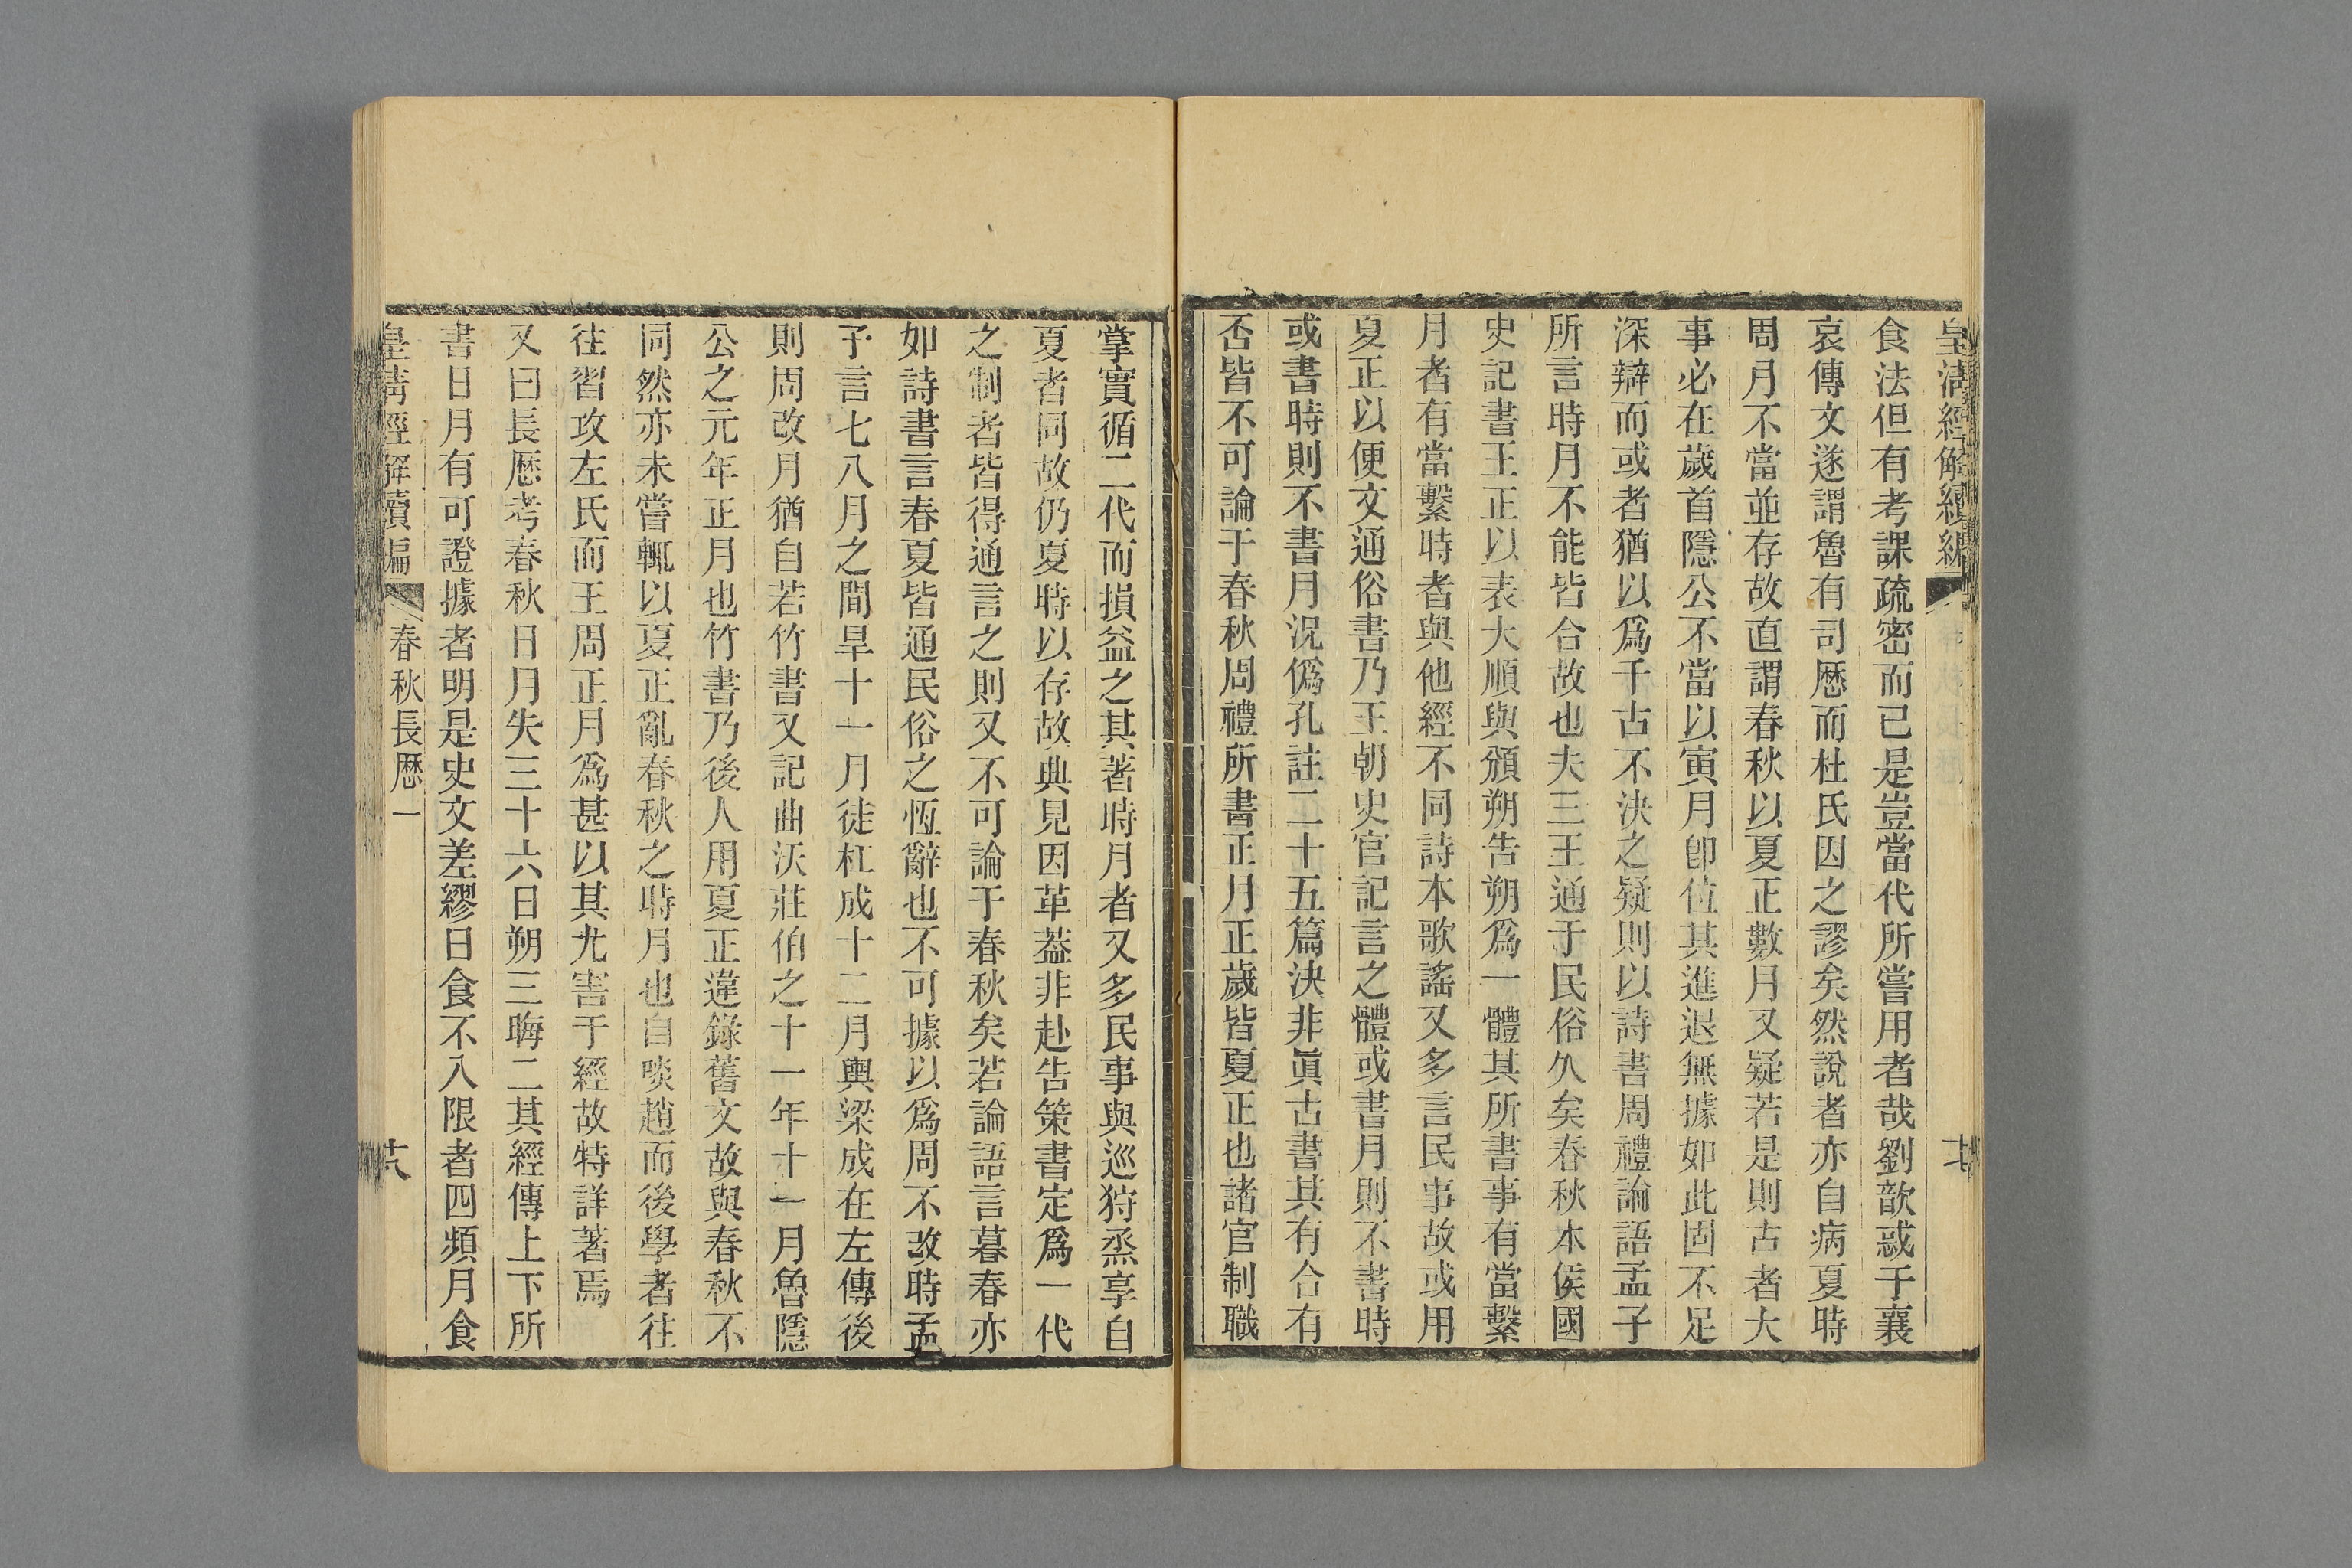 皇清經解續編
食法但有考課疏密而已是豈當代所嘗用者哉劉歆惑于襄
哀傳文遂謂魯有司歷而杜氏因之謬矣然說者亦自病夏時
周月不當並存故直謂春秋以夏正數月又疑若是則古者大
事必在歲首隱公不當以寅月卽位其進退無據如此固不足
深辯而或者猶以爲千古不決之疑則以詩書周禮論語孟子
所言時月不能皆合故也夫三王通于民俗久矣春秋本侯國
史記書王正以表大順與頒朔告朔爲一體其所書事有當繫
月者有當繫時者與他經不同詩本歌謠又多言民事故或用
夏正以便文通俗書乃王朝史官記言之體或書月則不書時
或書時則不書月況僞孔註二十五篇決非眞古書其有合有
否皆不可論于春秋周禮所書正月正歲皆夏正也諸官制職
掌實循二代而損益之其著時月者又多民事與巡狩烝享自
夏者同故仍夏時以存故典見因革葢非赴告策書定爲一代
之制者皆得通言之則又不可論于春秋矣若論語言暮春亦
如詩書言春夏皆通民俗之恆辭也不可據以爲周不改時孟
子言七八月之間旱十一月徒杠成十二月輿梁成在左傳後
則周改月猶自若竹書又記曲沃莊伯之十一年十一月魯隱
公之元年正月也竹書乃後人用夏正違錄舊文故與春秋不
同然亦未嘗輒以夏正亂春秋之時月也自啖趙而後學者往
往習攻左氏而王周正月爲甚以其尤害于經故特詳著焉
又曰長歷考春秋日月失三十六日朔三晦二其經傳上下所
書日月有可證據者明是史文差繆日食不入限者四頻月食
皇清經解續編 春秋長歷一 十八